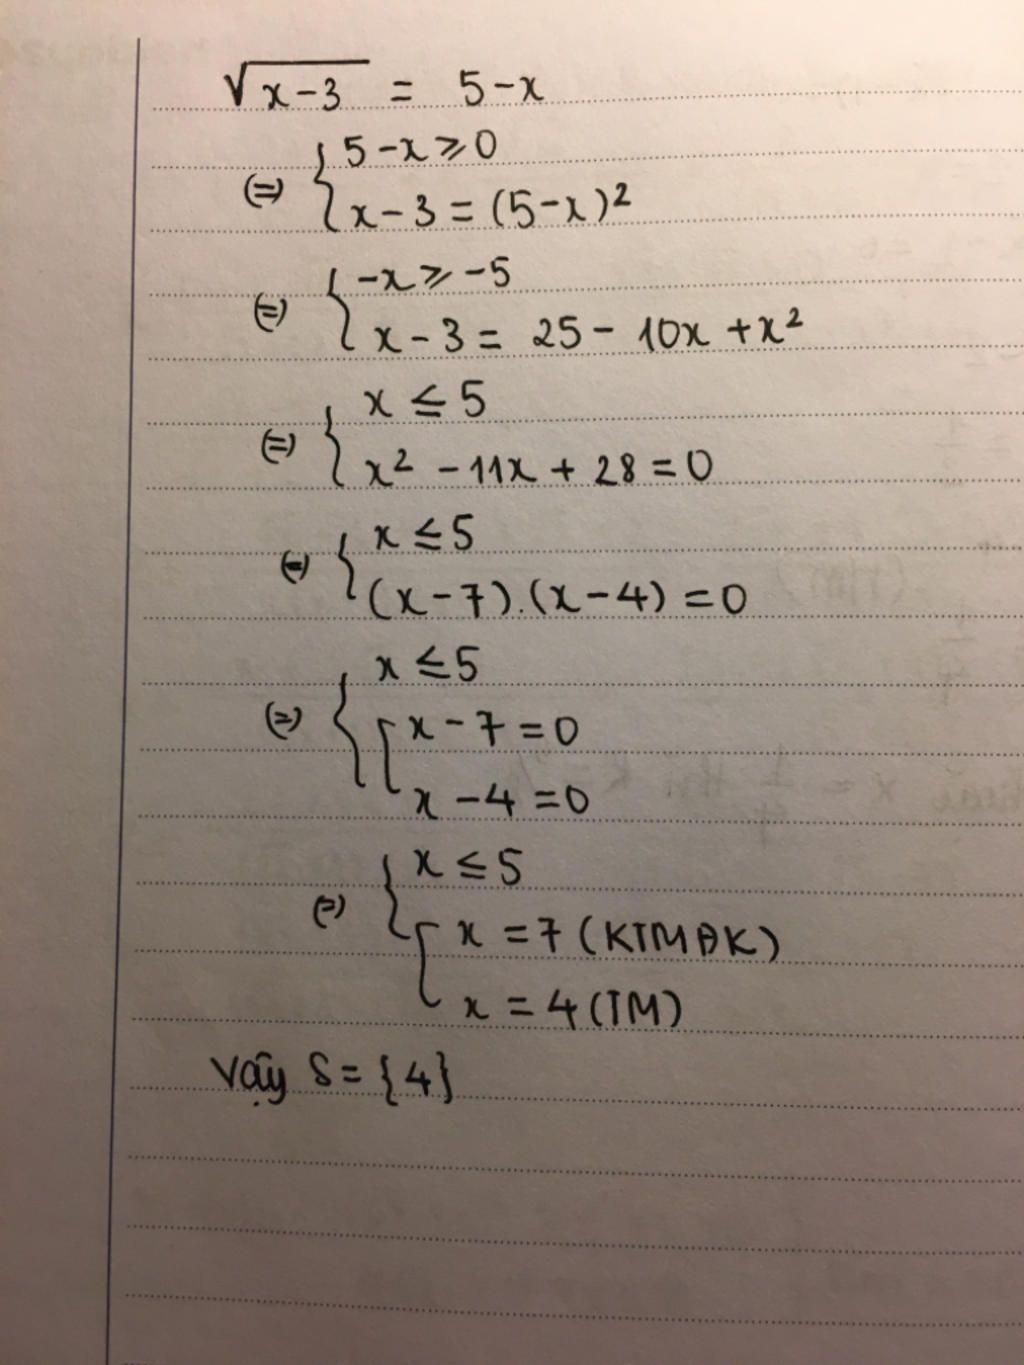 √(x-3) = 5-x
(=) { 5-x ⩾ 0
x-3 = (5-x)²
(=) { -x ⩾ -5
x-3 = 25 - 10x + x²
(=) { x ≤ 5
x² - 11x + 28 = 0
(=) { x ≤ 5
(x-7).(x-4) = 0
(=) { x ≤ 5
[ x - 7 = 0
x - 4 = 0
(=) { x ≤ 5
[ x = 7 (KTMĐK)
x = 4 (TM)
Vậy S = {4}